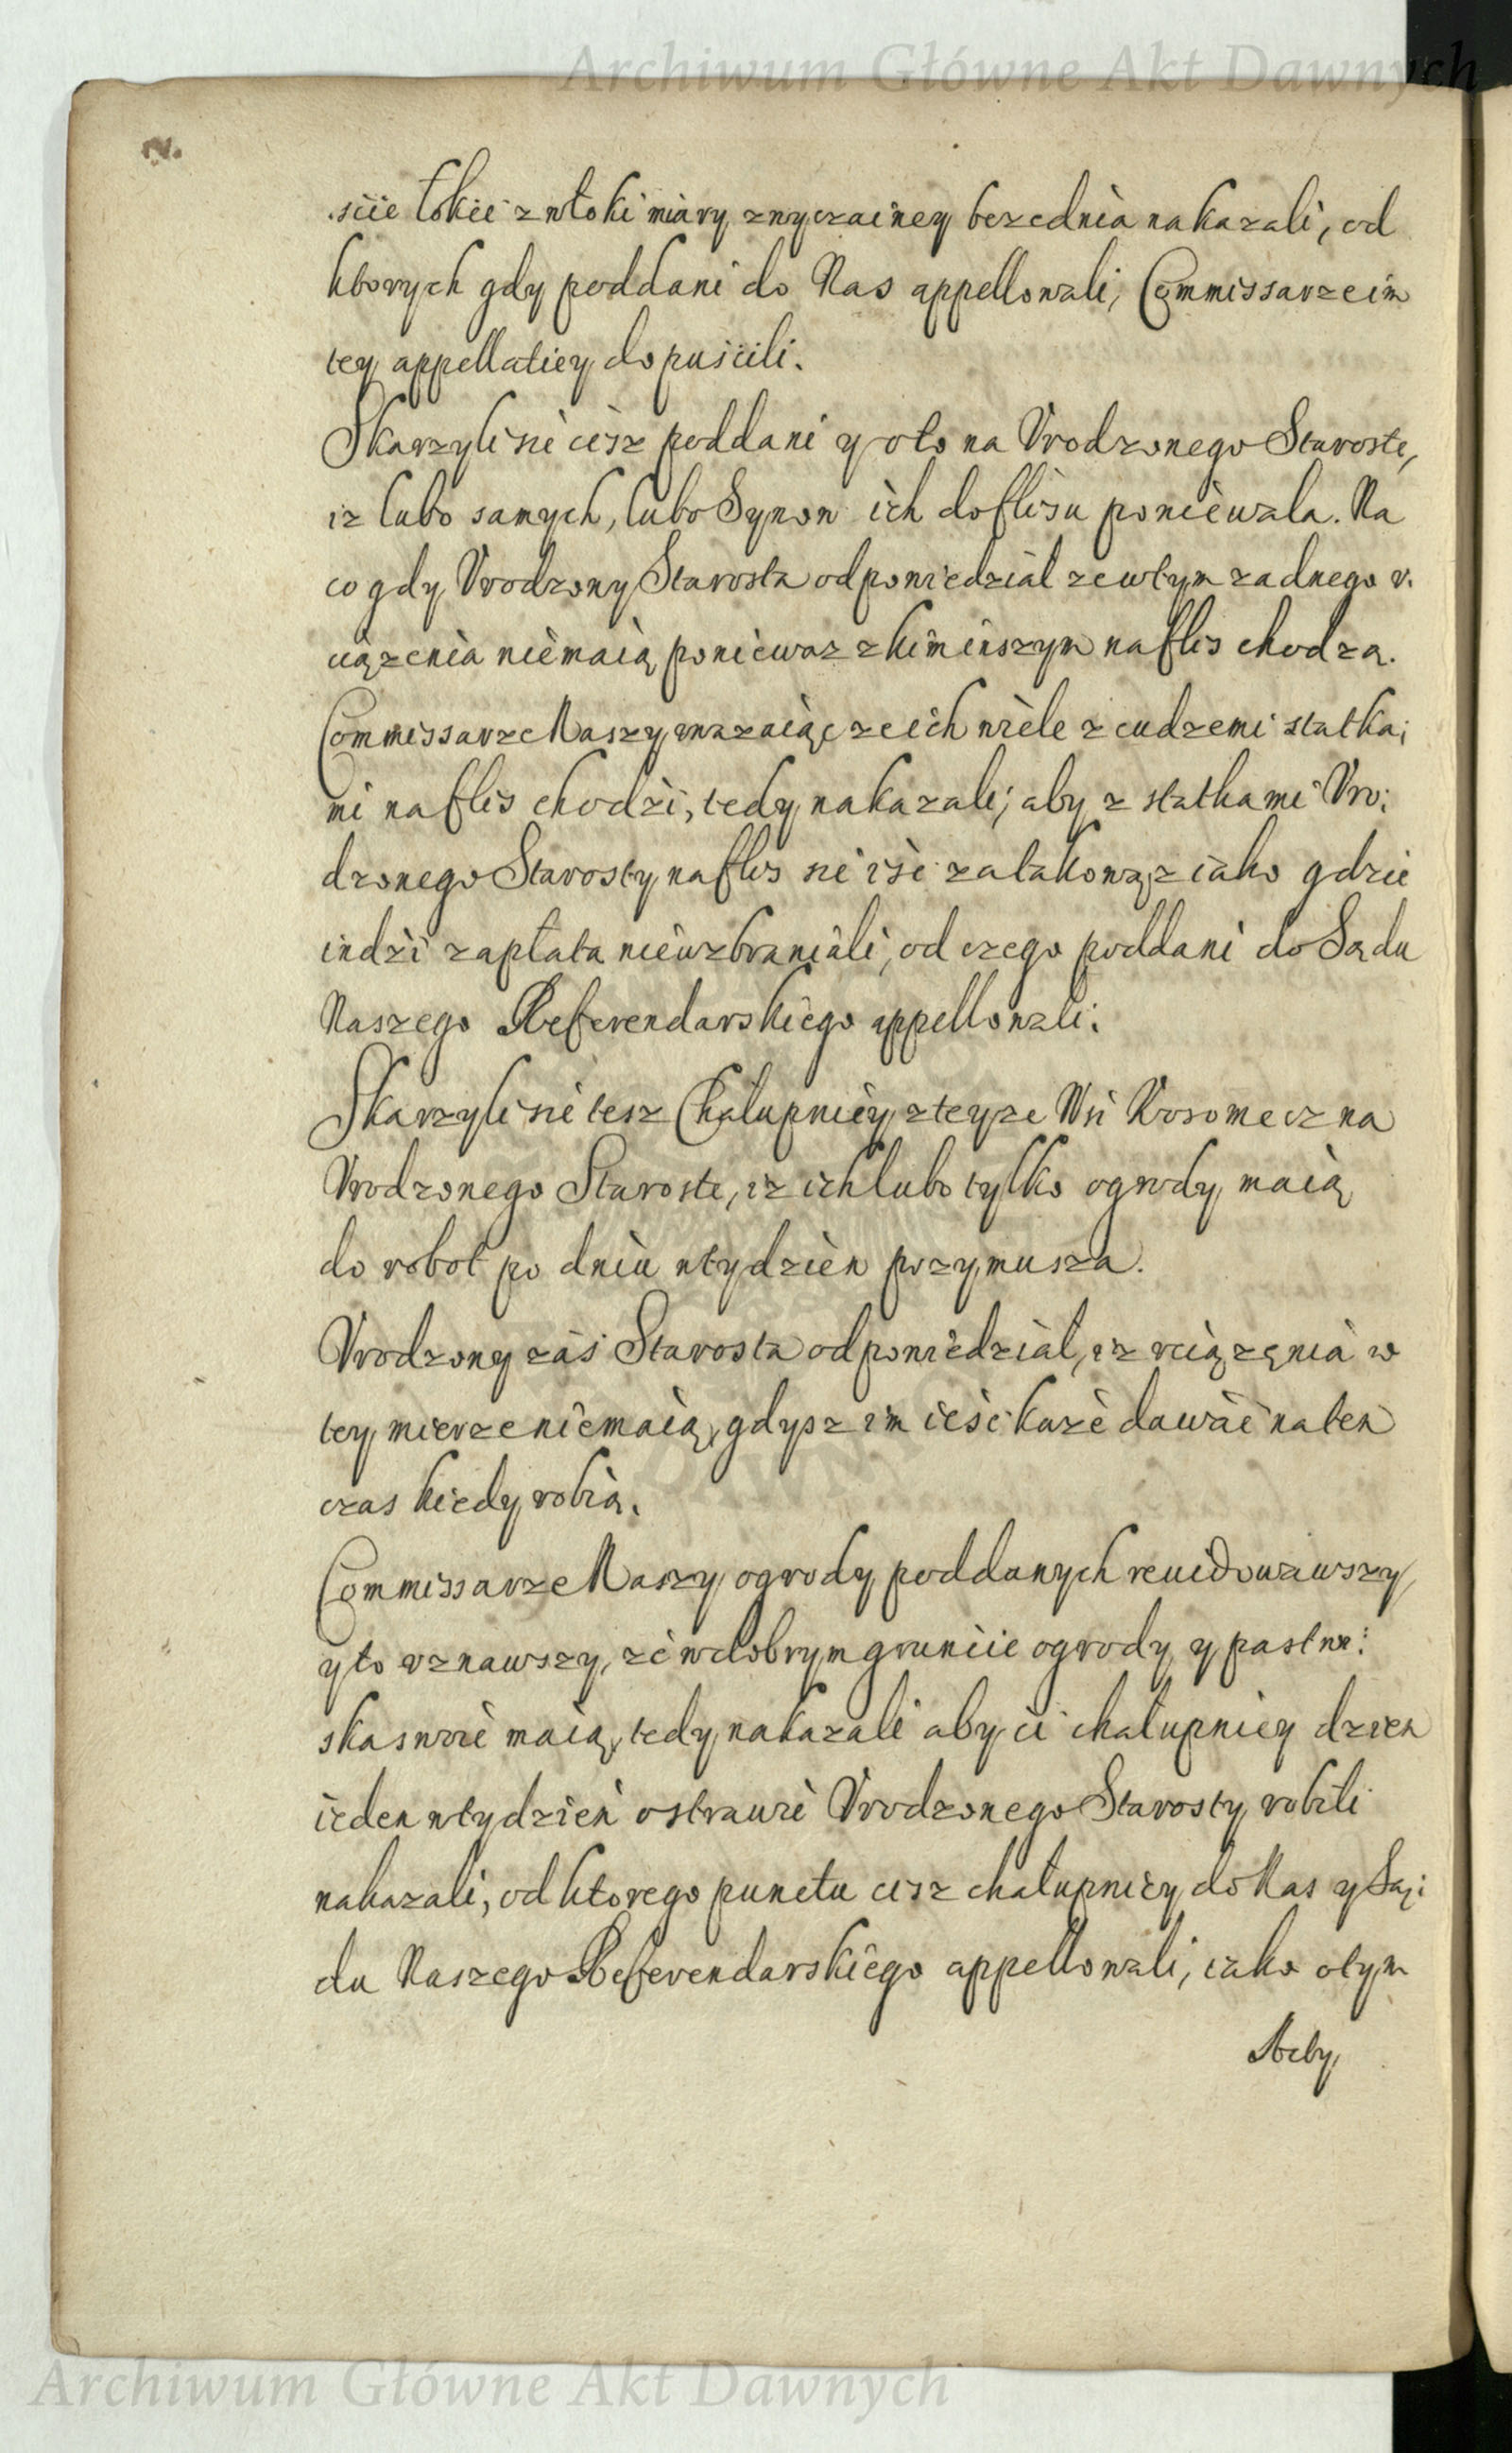 Archiwum Główne Akt Dawnych
2.
.scie łokci z włoki miary zwyczainey bez ednia nakazali, od
ktorych gdy poddani do Nas appellowali, Commissarze im
tey appellatiey dopuscili.
Skarzyli sie cisz poddani y oto na Vrodzonego Staroste,
iz lubo samych, lubo Synow ich do flisu poniewala. Na
co gdy Vrodzony Starosta odpowiedzial ze w tym zadnego v.
ciązenia niemaią poniewaz z kim inszym na flis chodzą.
Commissarze Naszy vwazaiąc ze ich wiele z cudzemi statka;
mi na flis chodzi, tedy nakazali; aby z statkami Vro;
dzonego Starosty na flis sie isc za takową z iako gdzie
indzi zapłatą niewzbraniali, od czego poddani do Sądu
Naszego Referendarskiego appellowali.
Skarzyli sie tesz Chałupnicy z teyze Wsi Kosomecz na
Vrodzonego Staroste, iz ich lubo tylko ogrody maią
do robot po dniu w tydzien przymusza.
Vrodzony zas Starosta odpowiedzial, iz vciązęnia w
tey mierze niemaią, gdysz im iesc kaze dawac na ten
czas kiedy robią.
Commissarze Naszy ogrody poddanych reuidowawszy,
y to vznawszy, ze w dobrym gruncie ogrody y pastwi:
ska swoie maią, tedy nakazali aby ci chałupnicy dzien
ieden w tydzien o strawie Vrodzonego Starosty robili
nakazali, od ktorego punctu cisz chałupnicy do Nas y Są;
du Naszego Referendarskiego appellowali, iako o tym
Archiwum Główne Akt Dawnych